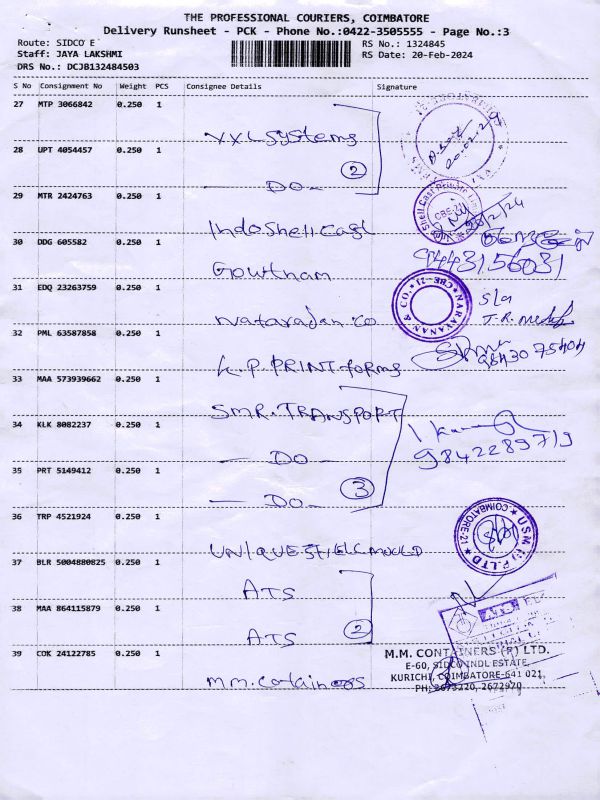 THE PROFESSIONAL COURIERS, COIMBATORE
Delivery Runsheet - PCK - Phone No.:0422-3505555 - Page No.:3
Route: SIDCO E
Staff: JAYA LAKSHMI
DRS No.: DCJB132484503
RS No.: 1324845
RS Date: 20-Feb-2024
S No Consignment No Weight PCS Consignee Details Signature
27 MTP 3066842 0.250 1
VXL Systems
28 UPT 4054457 0.250 1
- DO - 2
29 MTR 2424763 0.250 1
IndoShell cast
30 DDG 605582 0.250 1
9443156031
Gowtham
31 EDQ 23263759 0.250 1
NARAYANAN & CO. CBE-21
S/a
Natarajan.co
32 PML 63587858 0.250 1
9843075404
K.P. PRINT forms
33 MAA 573939662 0.250 1
SMR. TRANSPORT
34 KLK 8082237 0.250 1
- DO -
9842289719
35 PRT 5149412 0.250 1
- DO - 3
36 TRP 4521924 0.250 1
USM (I) P. LTD COIMBATORE-21
UNIQUE SHELL MOULD
37 BLR 5004880825 0.250 1
ATS
38 MAA 864115879 0.250 1
ATS 2
39 COK 24122785 0.250 1
M.M. CONTAINERS (P) LTD.
E-60, SIDCO INDL ESTATE,
KURICHI, COIMBATORE-641 021,
PH: 2673220, 2672970
m.m. containers